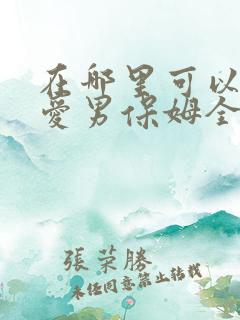 在哪里可以
爱男保姆全
張荣勝
未经同意禁止转载